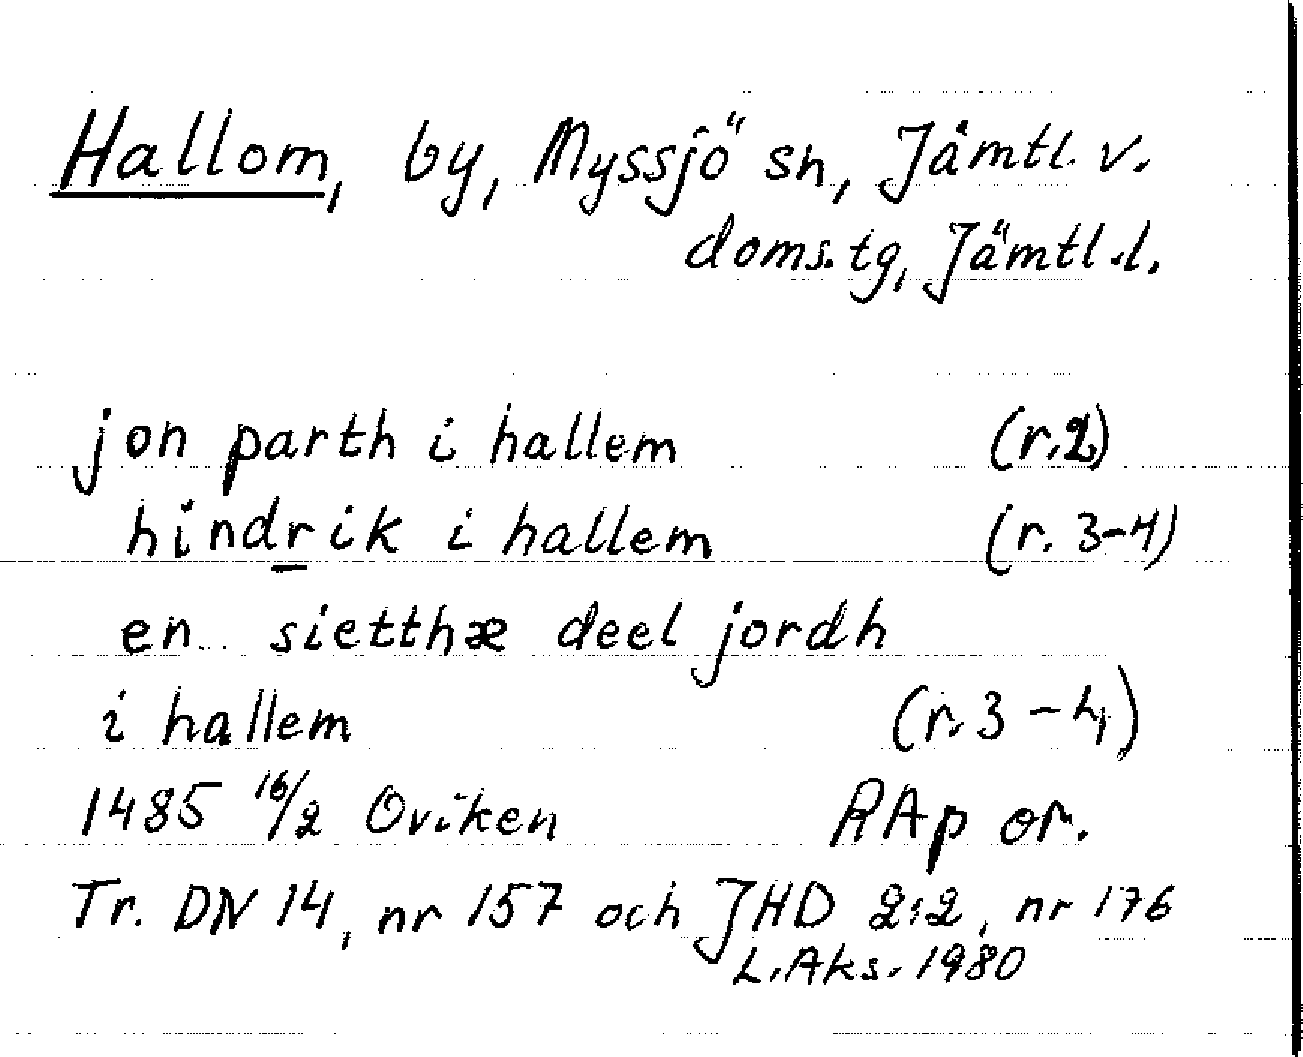 Hallom, by, Myssjö sn, Jämtl. v.
doms. tg, Jämtl. l.
jon parth i hallem (r. 2)
hindrik i hallem (r. 3-4)
en sietthæ deel jordh
i hallem (r. 3-4)
1485 16/2 Oviken RAp or.
Tr. DN 14, nr 157 och JHD 2:2, nr 176
L. Aks. 1980